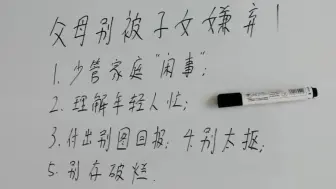 父母别被子女嫌弃!
1. 少管家庭“闲事”;
2. 理解年轻人忙;
3. 付出别图回报; 4. 别太抠;
5. 别存破烂.